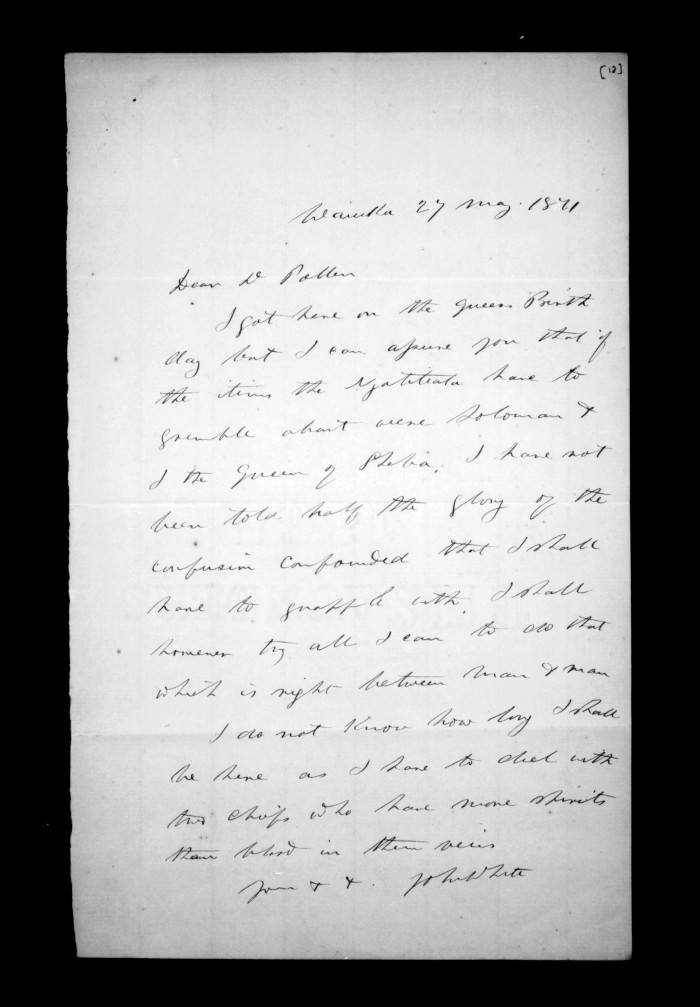 [12]
27 May. 1871
Dear Dr Pollen
I got here on the Queens Birth
day but I can assure you that if
the items the have to
grumble about were Soloman &
I the Queen of Sheba, I have not
been told half the glory of the
confusion confounded that I shall
have to grapple with. I shall
however try all I can to do that
which is right between man & man
I do not know how long I shall
be here as I have to deel with
two chiefs who have more spirits
than blood in their veins
your & &. John White